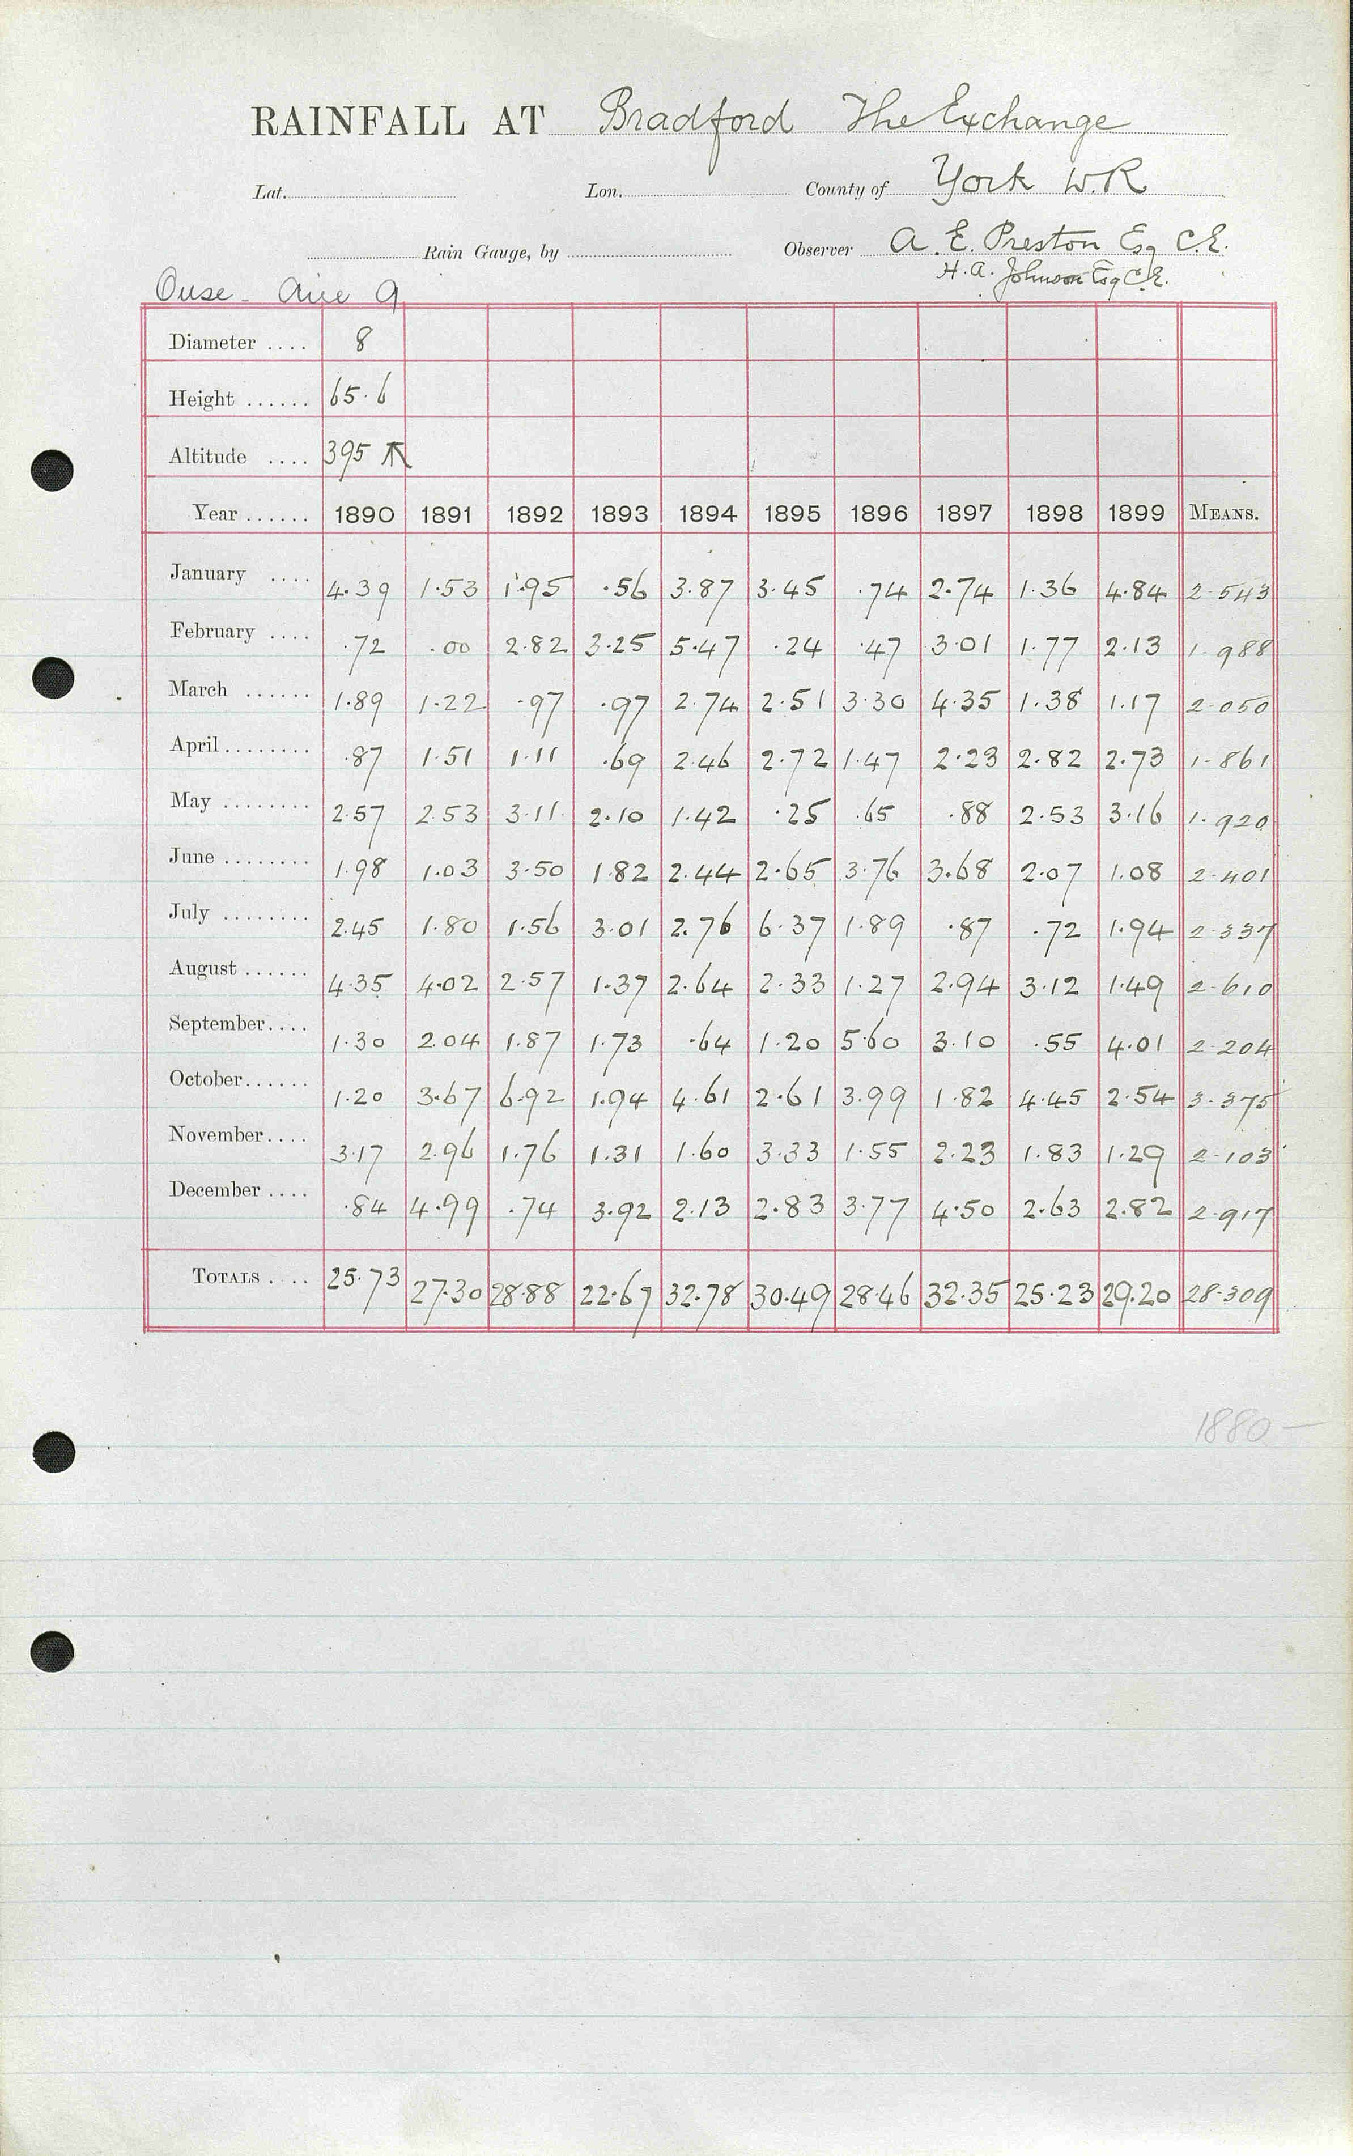 RAINFALL AT Bradford The Exchange
Lat. Lon. County of York W.R
Rain Gauge, by Observer A. E. Preston Esq C.E.
H. A. Johnson Esq C.E.
Ouse - Aire 9
Diameter .... 8
Height ...... 65.6
Altitude .... 395 ↖
Year ...... 1890 1891 1892 1893 1894 1895 1896 1897 1898 1899 MEANS.
January .... 4.39 1.53 1.95 .56 3.87 3.45 .74 2.74 1.36 4.84 2.543
February .... .72 .00 2.82 3.25 5.47 .24 .47 3.01 1.77 2.13 1.988
March ...... 1.89 1.22 .97 .97 2.74 2.51 3.30 4.35 1.38 1.17 2.050
April ........ .87 1.51 1.11 .69 2.46 2.72 1.47 2.23 2.82 2.73 1.861
May ........ 2.57 2.53 3.11 2.10 1.42 .25 .65 .88 2.53 3.16 1.920
June ........ 1.98 1.03 3.50 1.82 2.44 2.65 3.76 3.68 2.07 1.08 2.401
July ........ 2.45 1.80 1.56 3.01 2.76 6.37 1.89 .87 .72 1.94 2.337
August ...... 4.35 4.02 2.57 1.37 2.64 2.33 1.27 2.94 3.12 1.49 2.610
September .... 1.30 2.04 1.87 1.73 .64 1.20 5.60 3.10 .55 4.01 2.204
October ...... 1.20 3.67 6.92 1.94 4.61 2.61 3.99 1.82 4.45 2.54 3.375
November .... 3.17 2.96 1.76 1.31 1.60 3.33 1.55 2.23 1.83 1.29 2.103
December .... .84 4.99 .74 3.92 2.13 2.83 3.77 4.50 2.63 2.82 2.917
TOTALS .... 25.73 27.30 28.88 22.67 32.78 30.49 28.46 32.35 25.23 29.20 28.309
1880 -